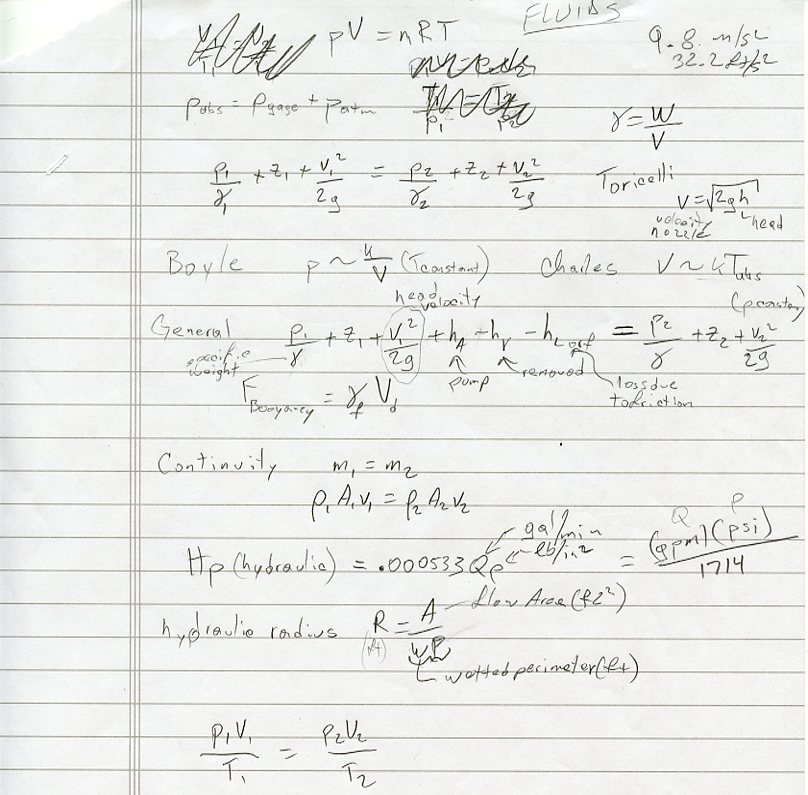 FLUIDS
pV = nRT
9.8 m/s²
32.2 ft/s²
Pabs = Pgage + Patm
γ = W/V
p₁/γ₁ + z₁ + v₁²/2g = p₂/γ₂ + z₂ + v₂²/2g
Toricelli
v = √2gh
head
velocity
nozzle
Boyle p ~ k/V (Tconstant) Charles V ~ kTabs
(pconstant)
head
velocity
General p₁/γ + z₁ + v₁²/2g + hA - hr - hL orf = p₂/γ + z₂ + v₂²/2g
specific
weight
pump
removed
loss due
to friction
FBouyancy = γf Vd
Continuity m₁ = m₂
ρ₁A₁v₁ = ρ₂A₂v₂
gal/min
lb/in²
Q P
Hp (hydraulic) = .000533Qp = (gpm)(psi)/1714
flow Area (ft²)
hydraulic radius R = A/WP
(ft)
wetted perimeter (ft)
p₁V₁/T₁ = p₂V₂/T₂